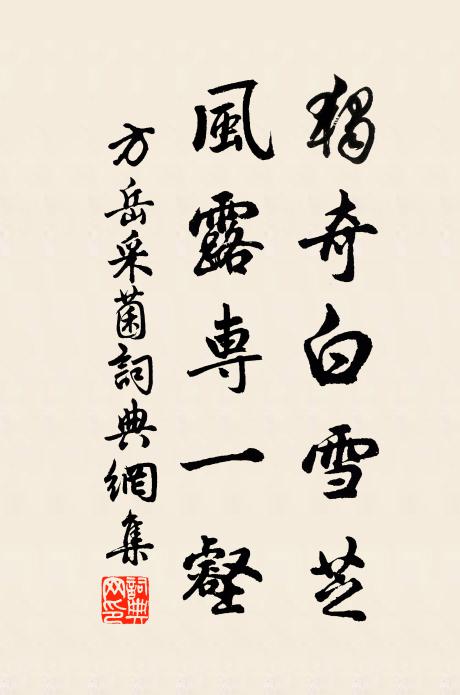 獨奇白雪芝
風露專一壑
方岳采菌詞典網集
詞典
网印